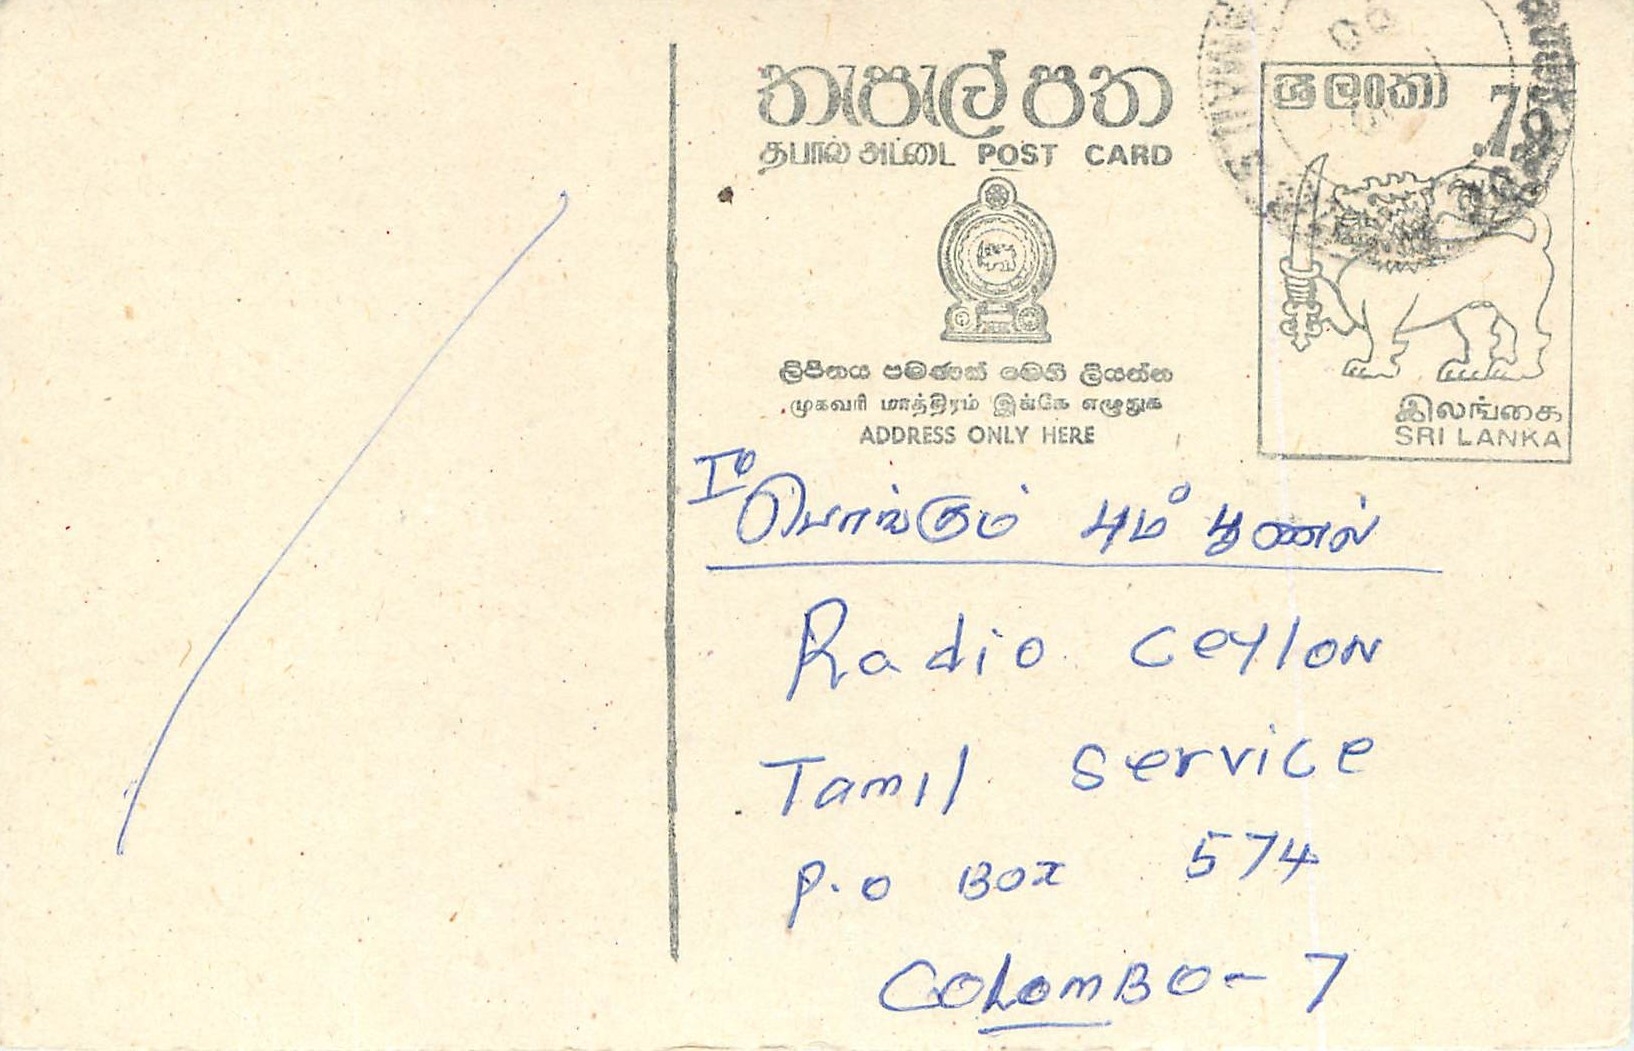 තැපැල් පත
தபால் அட்டை POST CARD
ශ්‍රී ලංකා
.75
ලිපිනය පමණක් මෙහි ලියන්න
முகவரி மாத்திரம் இங்கே எழுதுக
ADDRESS ONLY HERE
இலங்கை
SRI LANKA
To
பொங்கும் பூம் புனல்
Radio Ceylon
Tamil Service
P.O Box 574
COLOMBO - 7